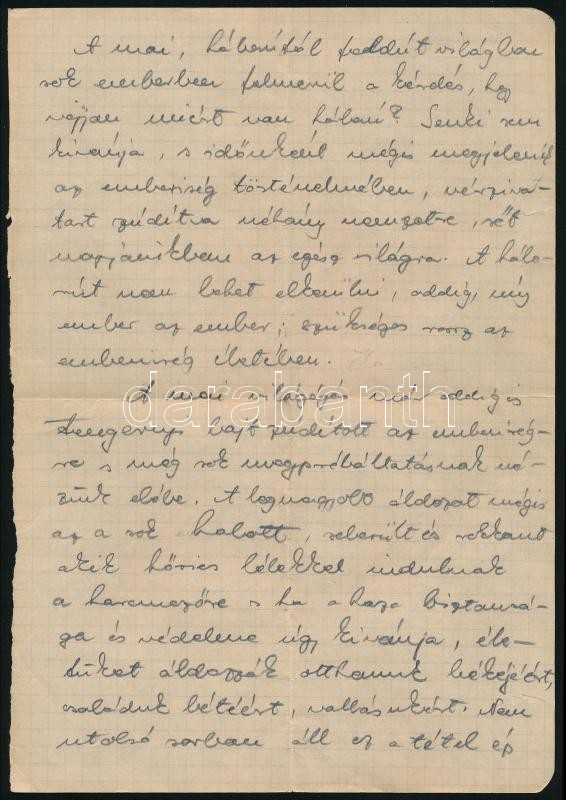 A mai, háborútól feldúlt világban
sok emberben felmerül a kérdés, hogy
vajjon miért van háború? Senki sem
kívánja, s időnként mégis megjelenik
az emberiség történelmében, vérziva-
tart zúdítva néhány nemzetre, sőt
napjainkban az egész világra. A hábo-
rút nem lehet elkerülni, addig, míg
ember az ember; szükséges rossz az
emberiség életében.
A mai világégés már eddig is
tengernyi bajt zúdított az emberiség-
re s még sok megpróbáltatásnak né-
zünk elébe. A legnagyobb áldozat mégis
az a sok halott, sebesült és rokkant
akik hősies lélekkel indulnak
a harcmezőre s ha a haza biztonsá-
ga és védelme úgy kívánja, éle-
tüket áldozzák otthonuk békéjéért,
családjuk létéért, vallásukért. Nem
utolsó sorban áll ez a tétel ép
darabanth